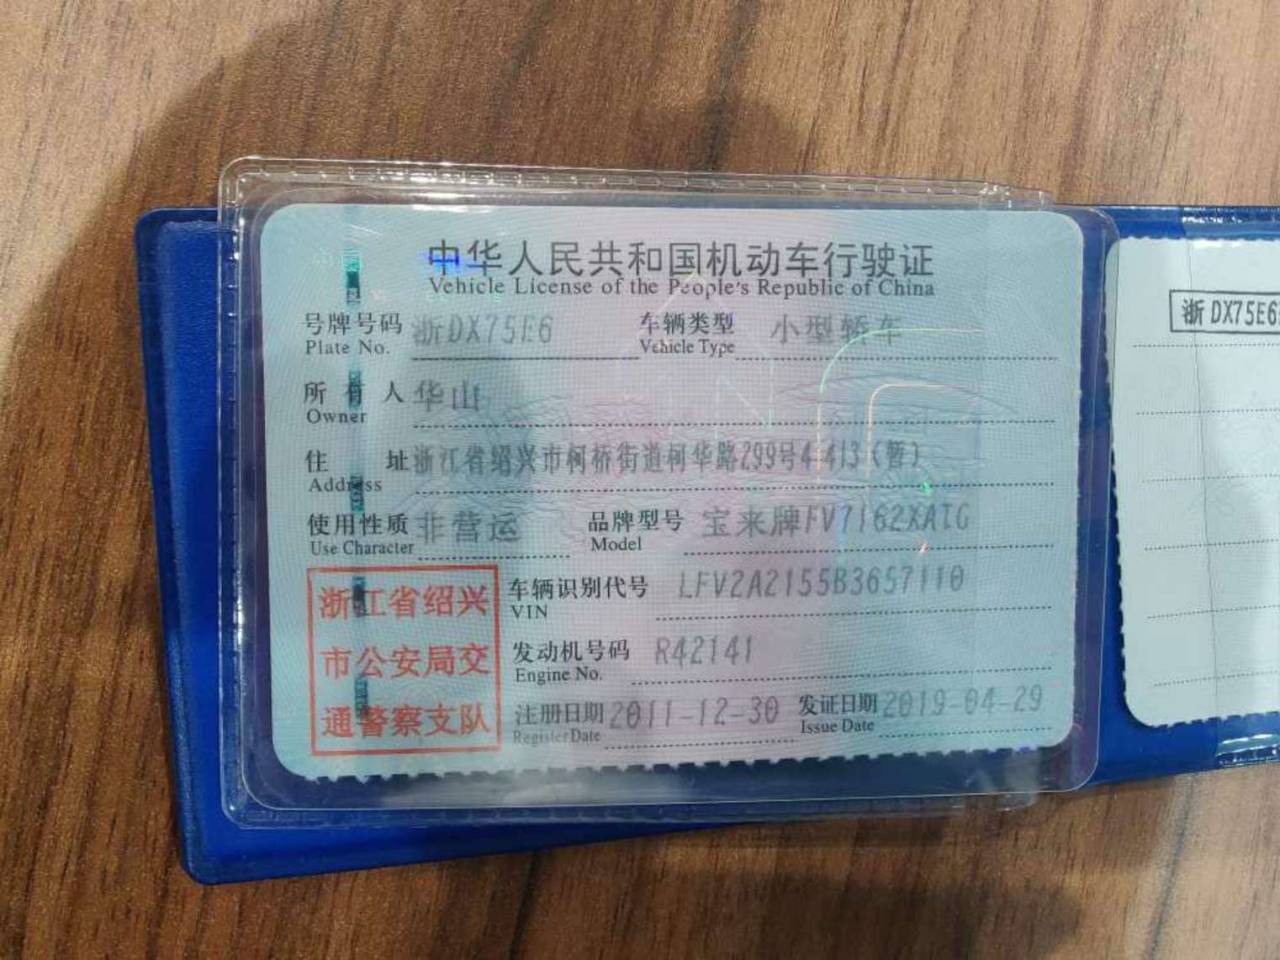 中华人民共和国机动车行驶证
Vehicle License of the People's Republic of China
号牌号码 浙DX75E6 车辆类型 小型轿车
Plate No. Vehicle Type
所有人 华山
Owner
住址 浙江省绍兴市柯桥街道柯华路299号4-413(暂)
Address
使用性质 非营运 品牌型号 宝来牌FV7162XATG
Use Character Model
车辆识别代号 LFV2A2155B3657110
VIN
发动机号码 R42141
Engine No.
注册日期 2011-12-30 发证日期 2019-04-29
Register Date Issue Date
浙江省绍兴
市公安局交
通警察支队
浙DX75E6